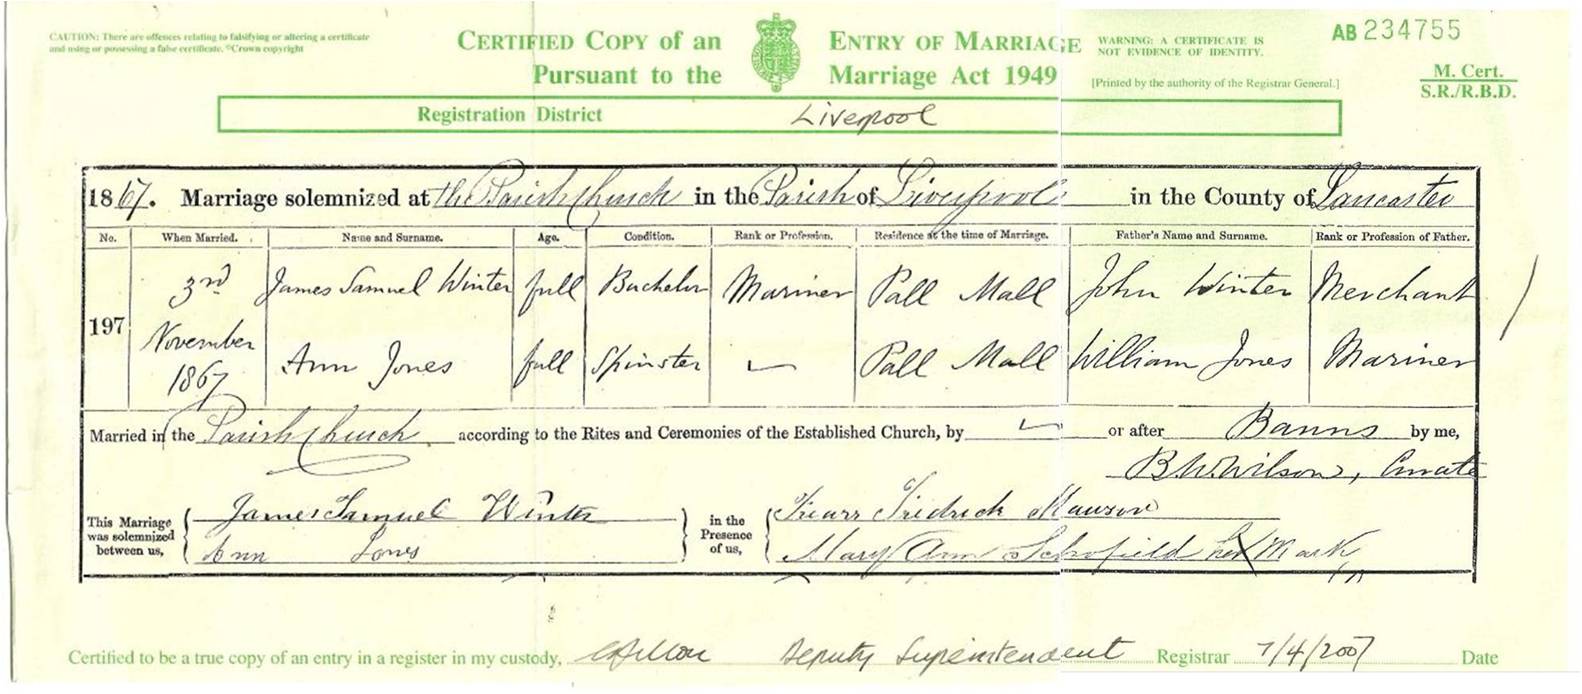 CAUTION: There are offences relating to falsifying or altering a certificate
and using or possessing a false certificate. ©Crown copyright
CERTIFIED COPY of an ENTRY OF MARRIAGE
Pursuant to the Marriage Act 1949
WARNING: A CERTIFICATE IS
NOT EVIDENCE OF IDENTITY.
[Printed by the authority of the Registrar General.]
AB 234755
M. Cert.
S.R./R.B.D.
Registration District Liverpool
1867. Marriage solemnized at the Parish Church in the Parish of Liverpool in the County of Lancaster
No. When Married. Name and Surname. Age. Condition. Rank or Profession. Residence at the time of Marriage. Father's Name and Surname. Rank or Profession of Father.
197 3rd November 1867
James Samuel Winter full Bachelor Mariner Pall Mall John Winter Merchant
Ann Jones full Spinster Pall Mall William Jones Mariner
Married in the Parish Church according to the Rites and Ceremonies of the Established Church, by or after Banns by me,
B.W. Wilson, Curate
This Marriage was solemnized between us,
James Samuel Winter
Ann Jones
in the Presence of us,
Fredrick Mawson
Mary Ann Schofield her X Mark
Certified to be a true copy of an entry in a register in my custody, Deputy Superintendent Registrar 7/4/2007 Date